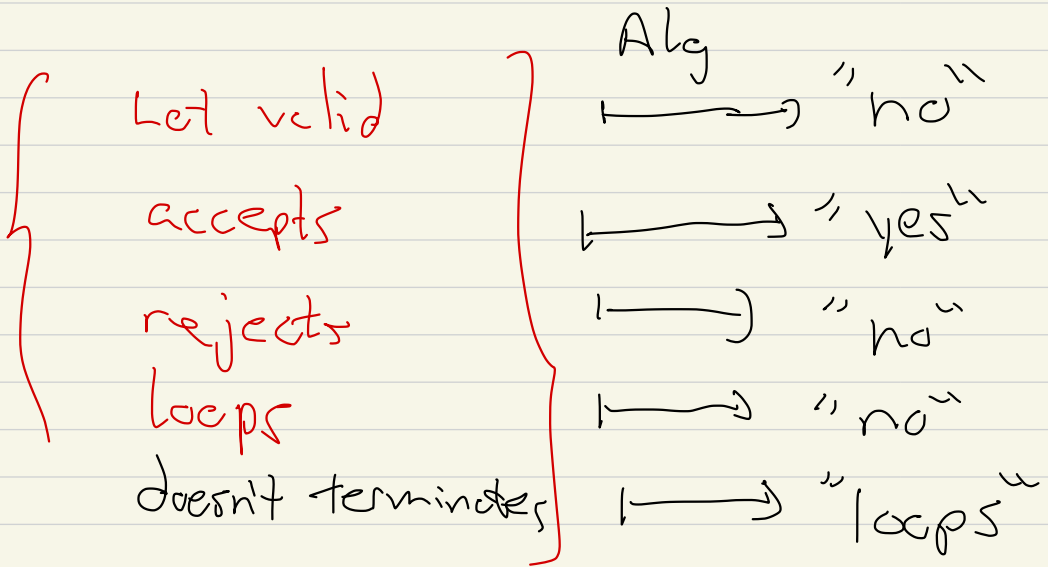 Alg
Not valid ↦ "no"
accepts ↦ "yes"
rejects ↦ "no"
loops ↦ "no"
doesn't terminates ↦ "loops"